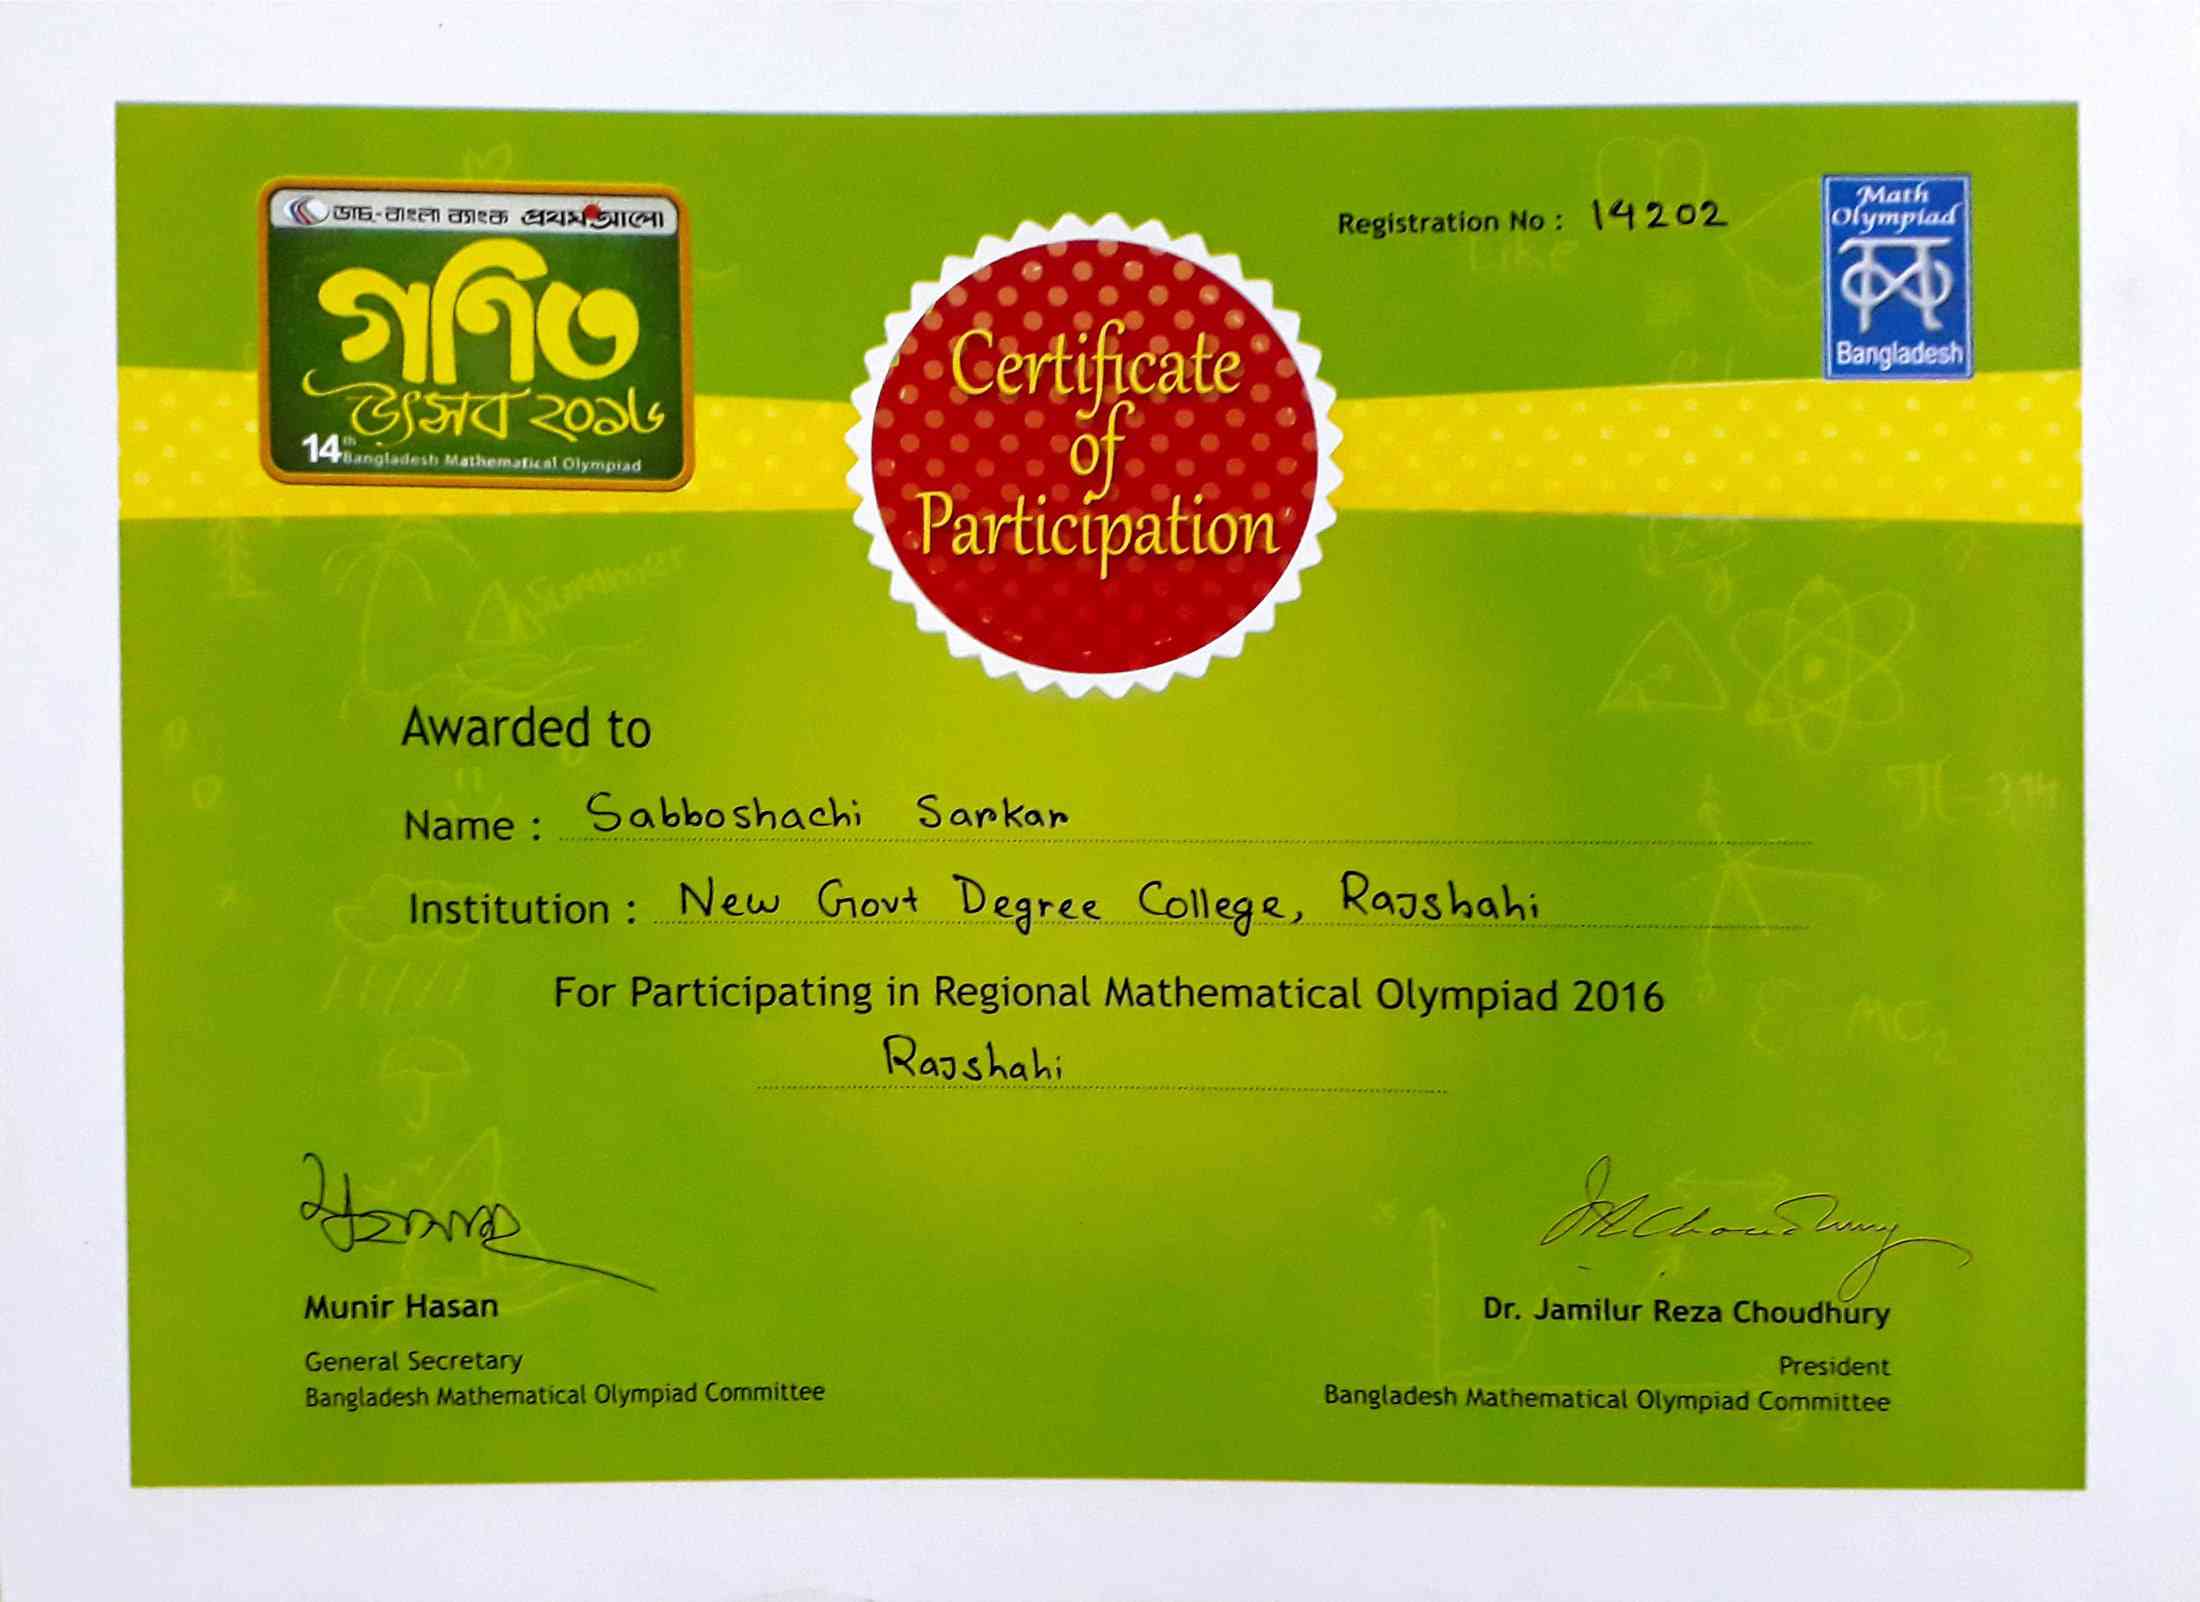 ডাচ্-বাংলা ব্যাংক প্রথম আলো
গণিত
উৎসব ২০১৬
14th Bangladesh Mathematical Olympiad
Certificate
of
Participation
Registration No : 14202
Math
Olympiad
Bangladesh
Like
Summer
Awarded to
Name : Sabboshachi Sarkar
Institution : New Govt Degree College, Rajshahi
For Participating in Regional Mathematical Olympiad 2016
Rajshahi
Munir Hasan
General Secretary
Bangladesh Mathematical Olympiad Committee
JRChoudhury
Dr. Jamilur Reza Choudhury
President
Bangladesh Mathematical Olympiad Committee